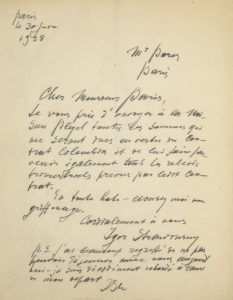 Paris
le 30 juin
1928
Mr Paris
Paris
Cher Monsieur Paris,
Je vous prie d'envoyer à la Mai-
son Pleyel toutes les sommes qui
me seront dues en vertu du con-
trat Columbia et de lui faire par-
venir également tous les relevés
trimestriels prévus par cette con-
trat.
En toute hâte - excusez mon
griffonage.
Cordialement à vous
Igor Strawinsky
P.S. J'ai beaucoup regretté de ne pas
pouvoir déjeuner avec vous aujourd'
hui - je suis
de mon départ